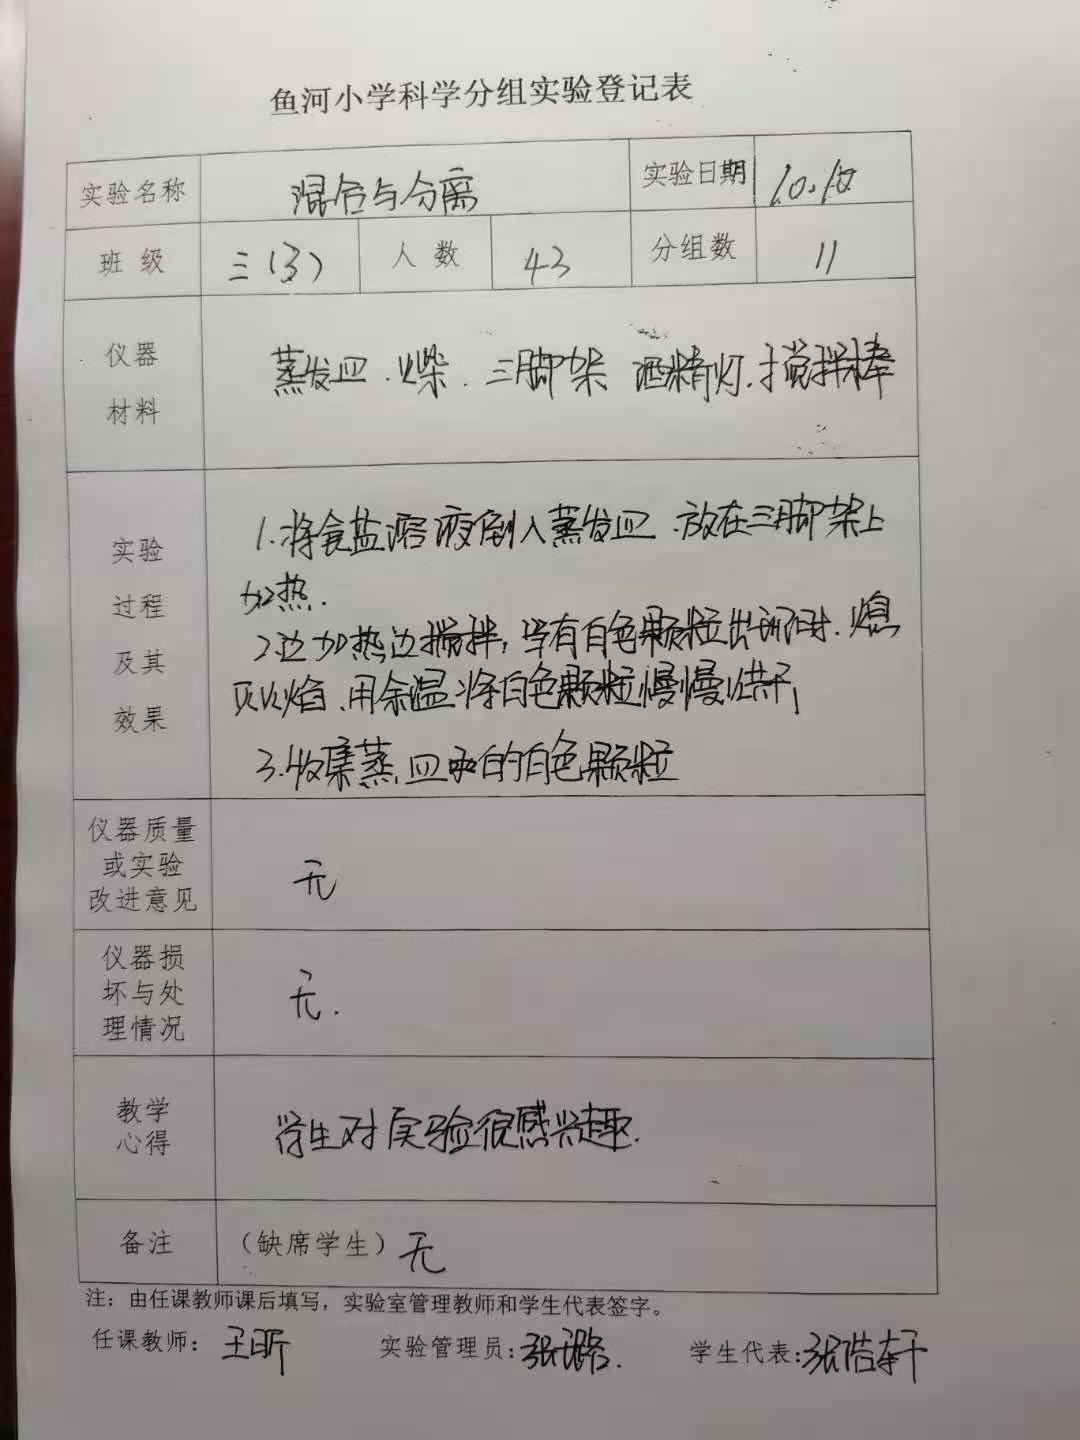 鱼河小学科学分组实验登记表
实验名称 混合与分离 实验日期
班 级 三(3) 人 数 43 分组数 11
仪器 材料 蒸发皿.火柴.三脚架 酒精灯.搅拌棒
实验 过程 及其 效果
1.将食盐溶液倒入蒸发皿.放在三脚架上
加热.
2边加热边搅拌,当有白色颗粒出现时.熄
灭火焰.用余温将白色颗粒慢慢烘干
3.收集蒸皿中的白色颗粒
仪器质量 或实验 改进意见 无
仪器损 坏与处 理情况 无.
教学 心得 学生对实验很感兴趣.
备注 (缺席学生) 无
注: 由任课教师课后填写, 实验室管理教师和学生代表签字。
任课教师: 王昕 实验管理员: 张璐. 学生代表: 张浩轩